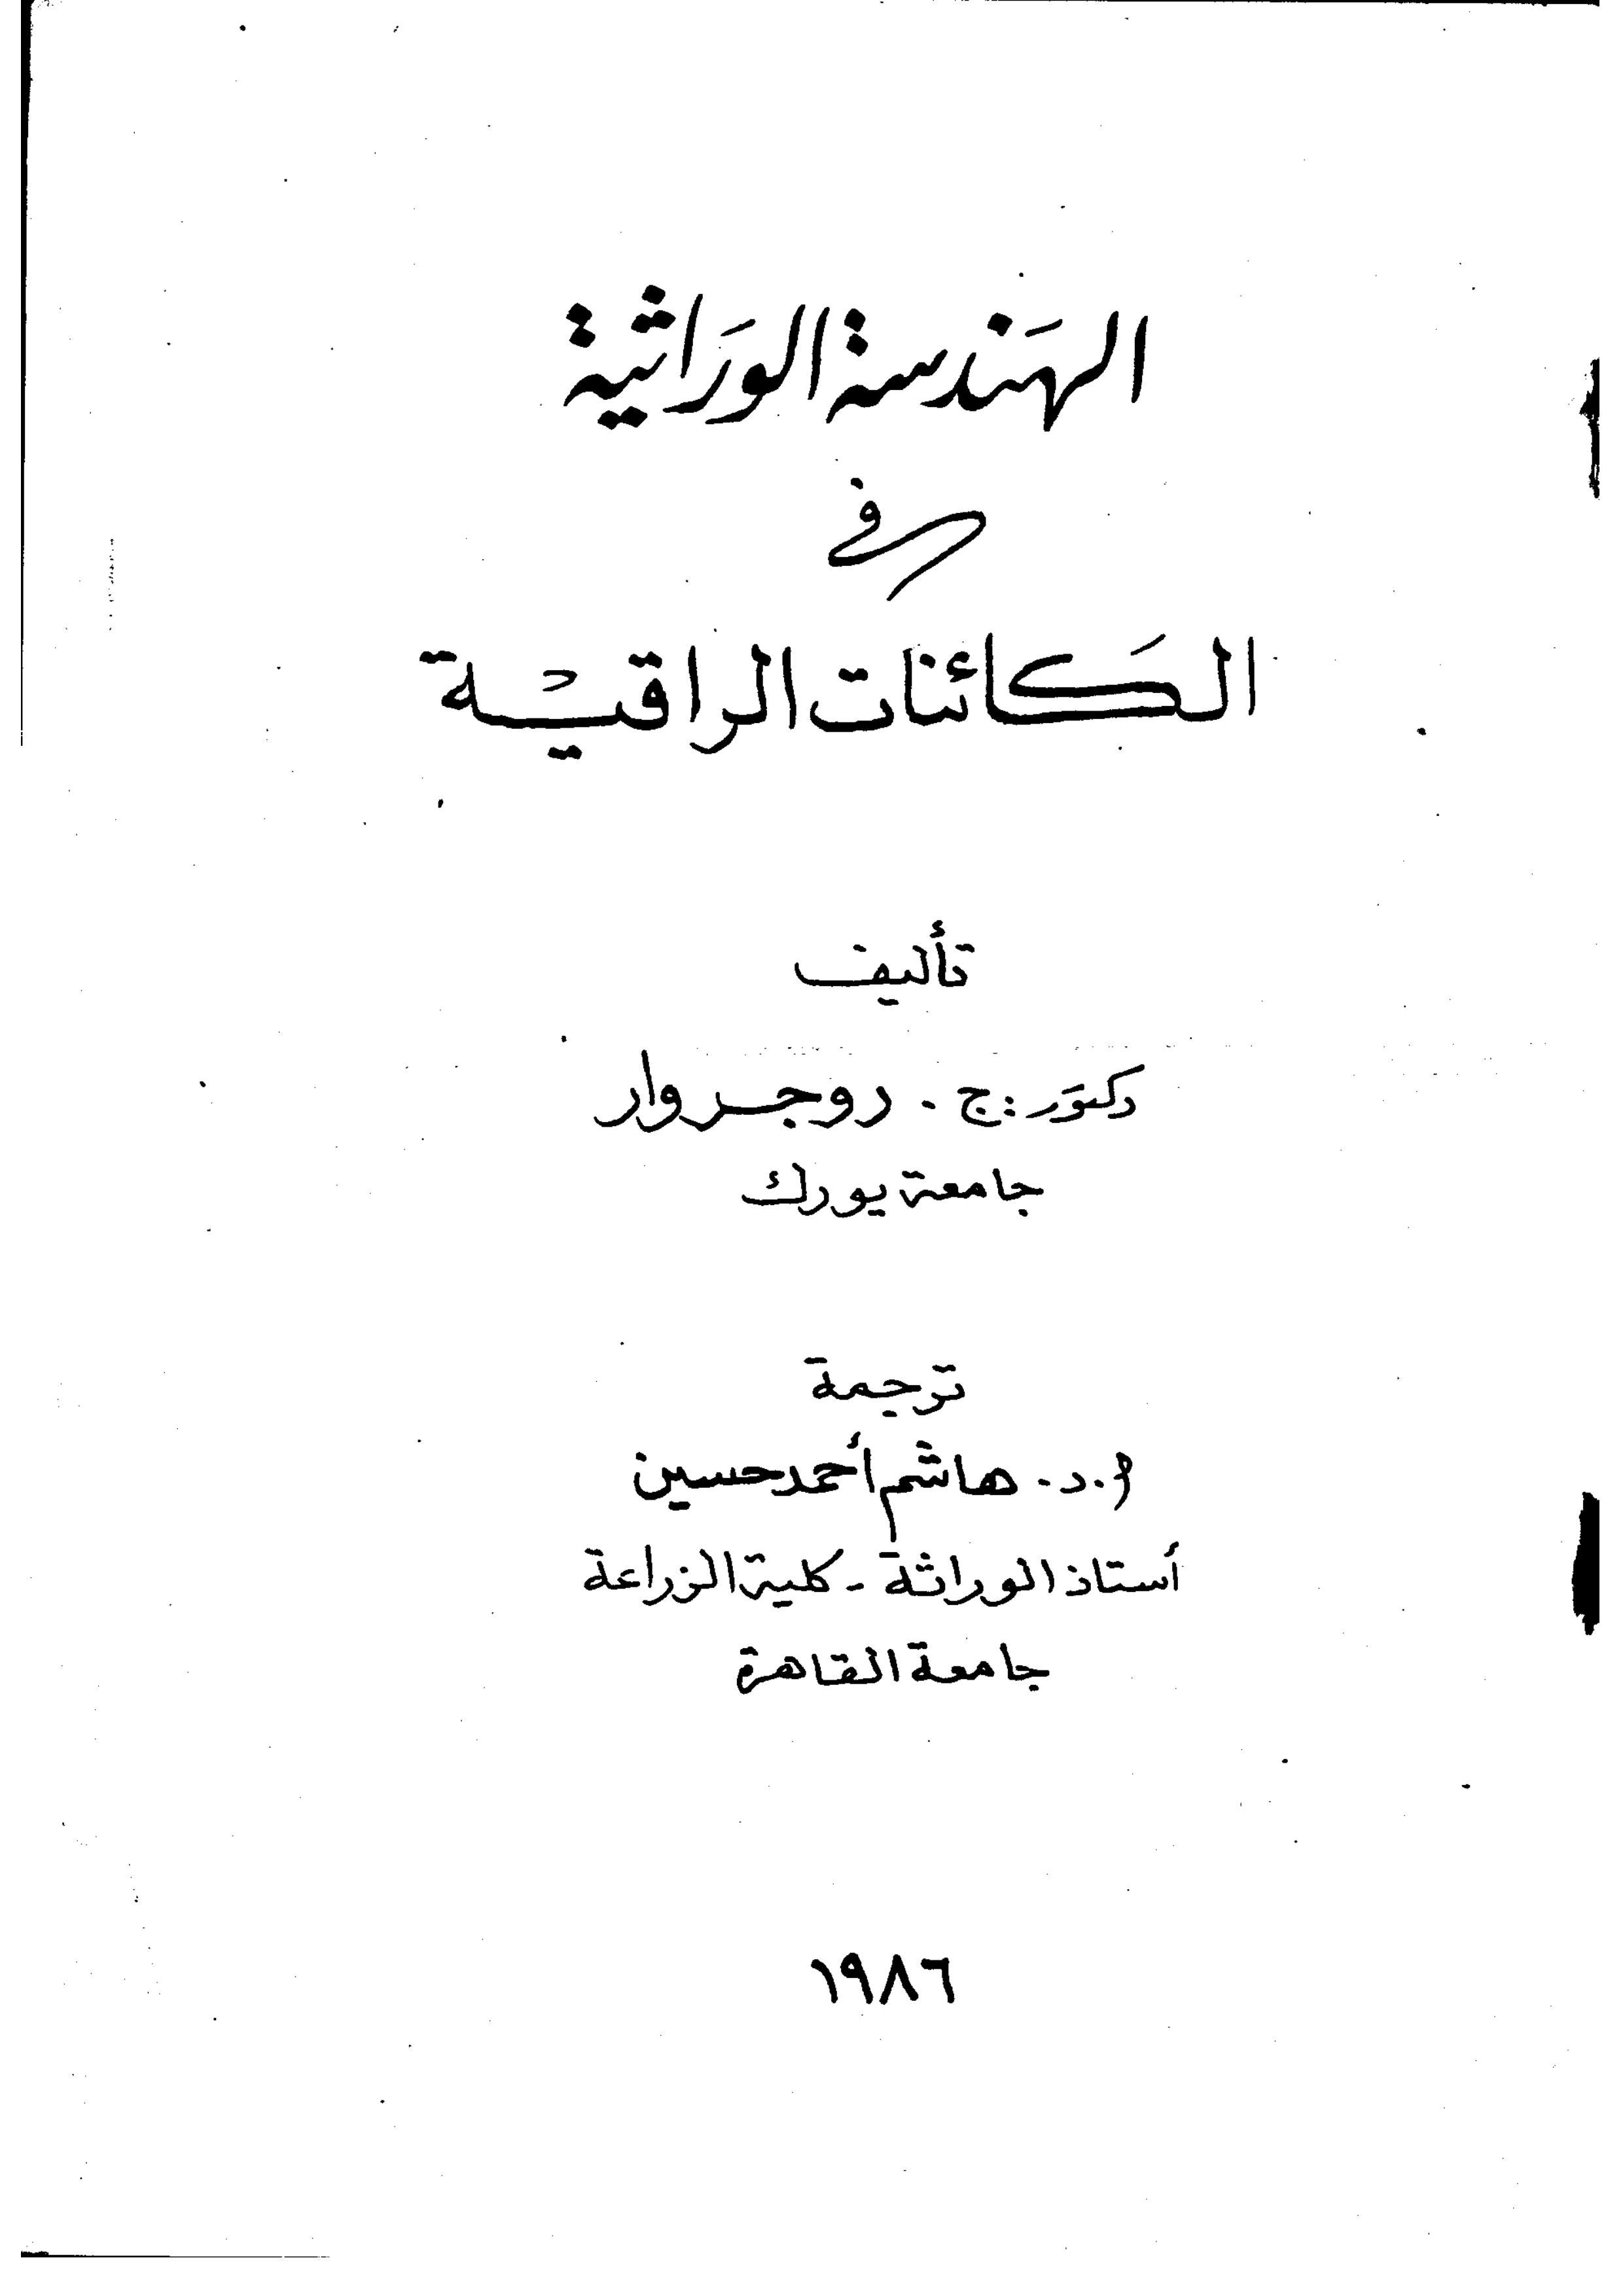 الهَندسة الوَراثية
في
الكَائنات الراقية
تأليف
دكتور : ج . روجر وار
جامعة يورك
ترجمة
أ . د . هاشم أحمد حسين
أستاذ الوراثة - كلية الزراعة
جامعة القاهرة
١٩٨٦